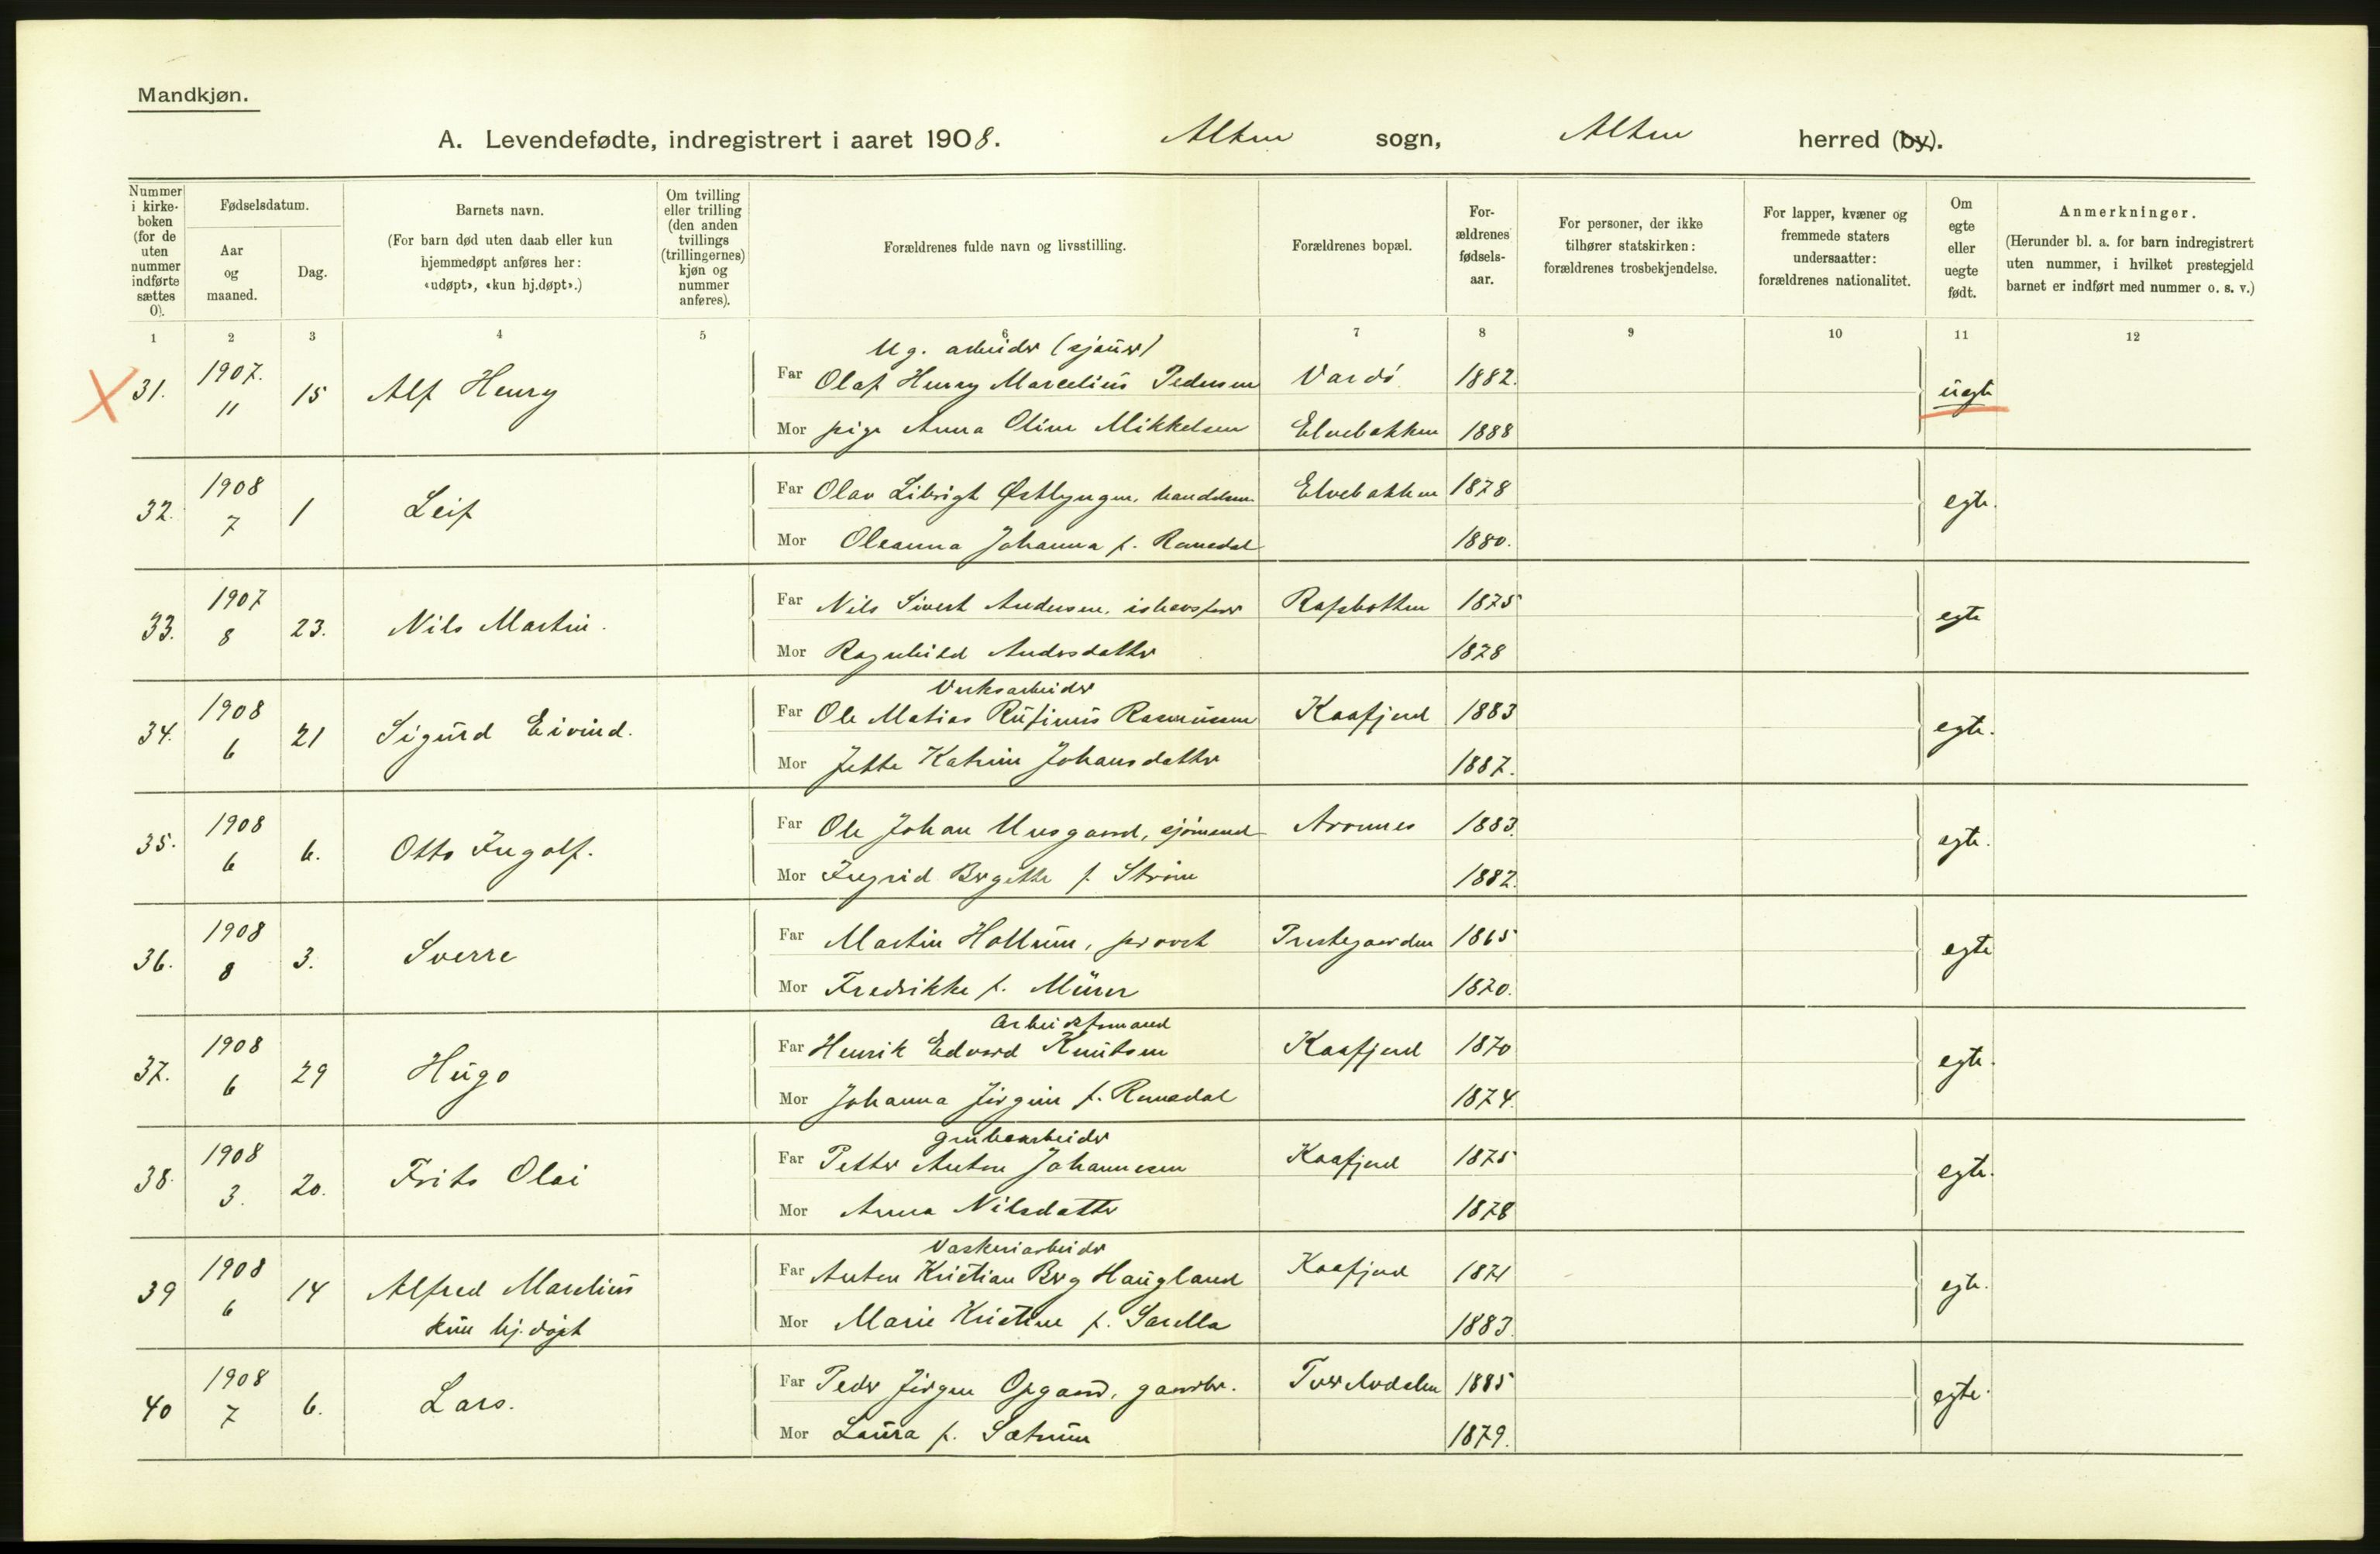 Mandkjøn.
A. Levendefødte, indregistrert i aaret 1908. Alten sogn, Alten herred (by).
Nummer i kirkeboken (for de uten nummer indførte sættes 0).
Fødselsdatum.
Aar og maaned.
Dag.
Barnets navn.
(For barn død uten daab eller kun hjemmedøpt anføres her: «udøpt», «kun hj.døpt».)
Om tvilling eller trilling (den anden tvillings (trillingernes) kjøn og nummer anføres).
Forældrenes fulde navn og livsstilling.
Forældrenes bopæl.
Forældrenes fødselsaar.
For personer, der ikke tilhører statskirken: forældrenes trosbekjendelse.
For lapper, kvæner og fremmede staters undersaatter: forældrenes nationalitet.
Om egte eller uegte født.
Anmerkninger.
(Herunder bl. a. for barn indregistrert uten nummer, i hvilket prestegjeld barnet er indført med nummer o. s. v.)
1 2 3 4 5 6 7 8 9 10 11 12
Ug. arbeider (sjauer)
31. 1907. 11 15 Alf Henry Far Olaf Henry Marcelius Pedersen Vardö 1882. uegte
Mor pige Anna Oline Mikkelsen Elvebakken 1888
32. 1908 7 1 Leif Far Olav Østlyngen, handelsm. Elvebakken 1878 egte.
Mor Oleanna Johanna f. Romsdal 1880.
33. 1907 8 23. Nils Martin. Far Nils Sivert Andersen, ishavsfarer Rafsbotten 1875 egte
Mor Ragnhild Andersdatter 1878
Verksarbeider
34. 1908 6 21 Sigurd Eivind. Far Ole Matias Rufinus Rasmussen Kaafjord 1883 egte.
Mor Jette Katrine Johansdatter 1887.
35. 1908 6 6. Otto Ingolf. Far Ole Johan Uusgaard, sjömand Aronnes 1883. egte.
Mor Ingrid Bergitte f. Ström 1882.
36. 1908 8 3. Sverre Far Martin Hallum, provst Prestegaarden 1865 egte
Mor Fredrikke f. Mürer 1870.
Arbeidsformand
37. 1908 6 29 Hugo Far Henrik Edvard Knutsen Kaafjord 1870 egte.
Mor Johanna Jörgine f. Romsdal 1874.
grubearbeider
38. 1908 3. 20. Frits Olai Far Petter Anton Johannesen Kaafjord 1875 egte.
Mor Anna Nilsdatter 1878
Vaskeriarbeider
39 1908 6 14 Alfred Marelius Far Anton Kristian Berg Haugland Kaafjord 1871 egte.
kun hj.døpt Mor Marie Kristine f. Sarella 1883.
40 1908 7 6. Lars. Far Peder Jörgen Opgaard, gaardbr. Tverelvdalen 1885 egte.
Mor Laura f. Sætrum 1879.